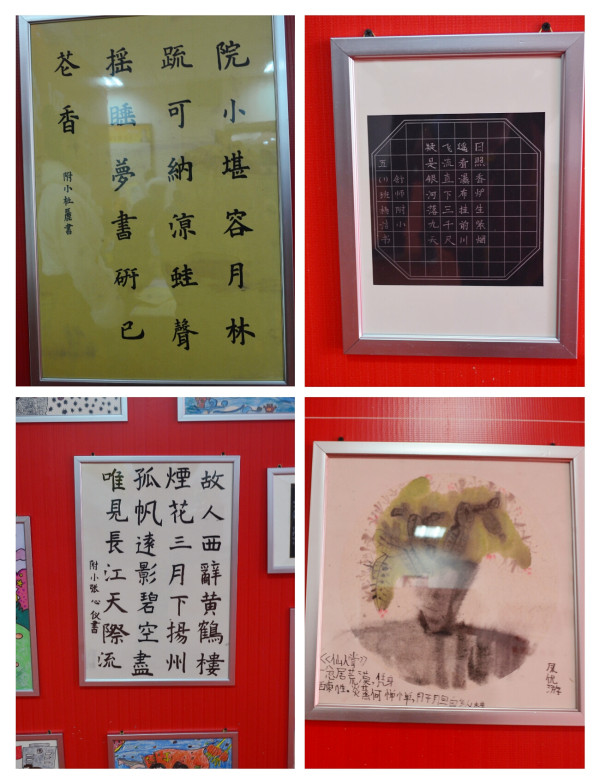 院小堪容月林
疏可納涼蛙聲
搖睡夢書硏已
苍香
附小杜書
日照香炉生紫烟
遥看瀑布挂前川
飞流直下三千尺
疑是银河落九天
师附小
五班杨书
故人西辭黄鶴樓
煙花三月下揚州
孤帆遠影碧空盡
唯見長江天際流
附小張心仪書
《仙人掌》
居荒漠